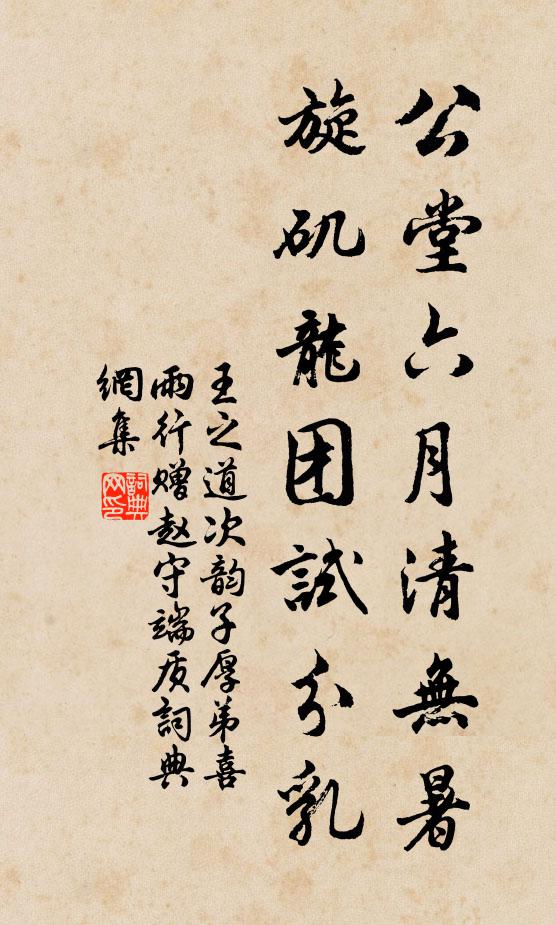 公堂六月清無暑
旋矶龍团試分乳
王之道次韵子厚弟喜
雨行赠赵守端质詞典
網集
詞典
网印